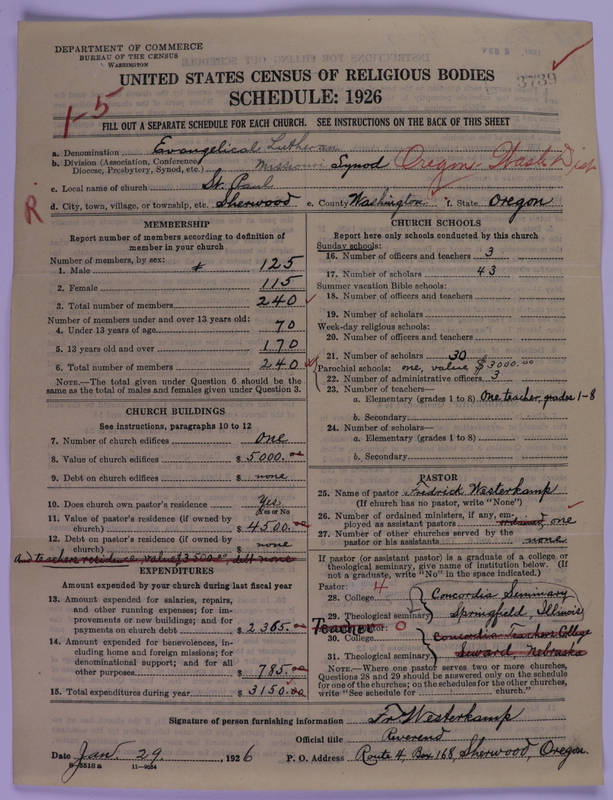 DEPARTMENT OF COMMERCE
BUREAU OF THE CENSUS
WASHINGTON
UNITED STATES CENSUS OF RELIGIOUS BODIES
3739
SCHEDULE: 1926
1-5
FILL OUT A SEPARATE SCHEDULE FOR EACH CHURCH. SEE INSTRUCTIONS ON THE BACK OF THIS SHEET
a. Denomination Evangelical Lutheran
b. Division (Association, Conference, Diocese, Presbytery, Synod, etc.) Missouri Synod Oregon & Wash Dist
c. Local name of church St. Paul
R
d. City, town, village, or township, etc. Sherwood e. County Washington f. State Oregon
MEMBERSHIP
Report number of members according to definition of member in your church
Number of members, by sex:
1. Male 125
2. Female 115
3. Total number of members 240
Number of members under and over 13 years old:
4. Under 13 years of age 70
5. 13 years old and over 170
6. Total number of members 240
NOTE.—The total given under Question 6 should be the same as the total of males and females given under Question 3.
CHURCH BUILDINGS
See instructions, paragraphs 10 to 12
7. Number of church edifices one
8. Value of church edifices $ 5000.00
9. Debt on church edifices $ none
10. Does church own pastor's residence Yes
Yes or No
11. Value of pastor's residence (if owned by church) $ 4500.00
12. Debt on pastor's residence (if owned by church) $ none
and teachers residence, value of 3500.00, debt none
EXPENDITURES
Amount expended by your church during last fiscal year
13. Amount expended for salaries, repairs, and other running expenses; for improvements or new buildings; and for payments on church debt $ 2365.00
14. Amount expended for benevolences, including home and foreign missions; for denominational support; and for all other purposes $ 785.00
15. Total expenditures during year $ 3150.00
CHURCH SCHOOLS
Report here only schools conducted by this church
Sunday schools:
16. Number of officers and teachers 3
17. Number of scholars 43
Summer vacation Bible schools:
18. Number of officers and teachers
19. Number of scholars
Week-day religious schools:
20. Number of officers and teachers
21. Number of scholars 30
Parochial schools: one, value $3000.00
22. Number of administrative officers 3
23. Number of teachers—
a. Elementary (grades 1 to 8) One teacher, grades 1-8
b. Secondary
24. Number of scholars—
a. Elementary (grades 1 to 8)
b. Secondary
PASTOR
25. Name of pastor Fredrick Westerkamp
(If church has no pastor, write "None")
26. Number of ordained ministers, if any, employed as assistant pastors one
27. Number of other churches served by the pastor or his assistants none
If pastor (or assistant pastor) is a graduate of a college or theological seminary, give name of institution below. (If not a graduate, write "No" in the space indicated.)
Pastor: 4
28. College Concordia Seminary
29. Theological seminary Springfield, Illinois
Teacher 0
30. College Concordia Teachers College
31. Theological seminary Seward, Nebraska
NOTE.—Where one pastor serves two or more churches, Questions 28 and 29 should be answered only on the schedule for one of the churches; on the schedules for the other churches, write "See schedule for church."
Signature of person furnishing information Fr. Westerkamp
Official title Reverend
Date Jan. 29. 1926 P. O. Address Route 4, Box 168, Sherwood, Oregon.
11—9034